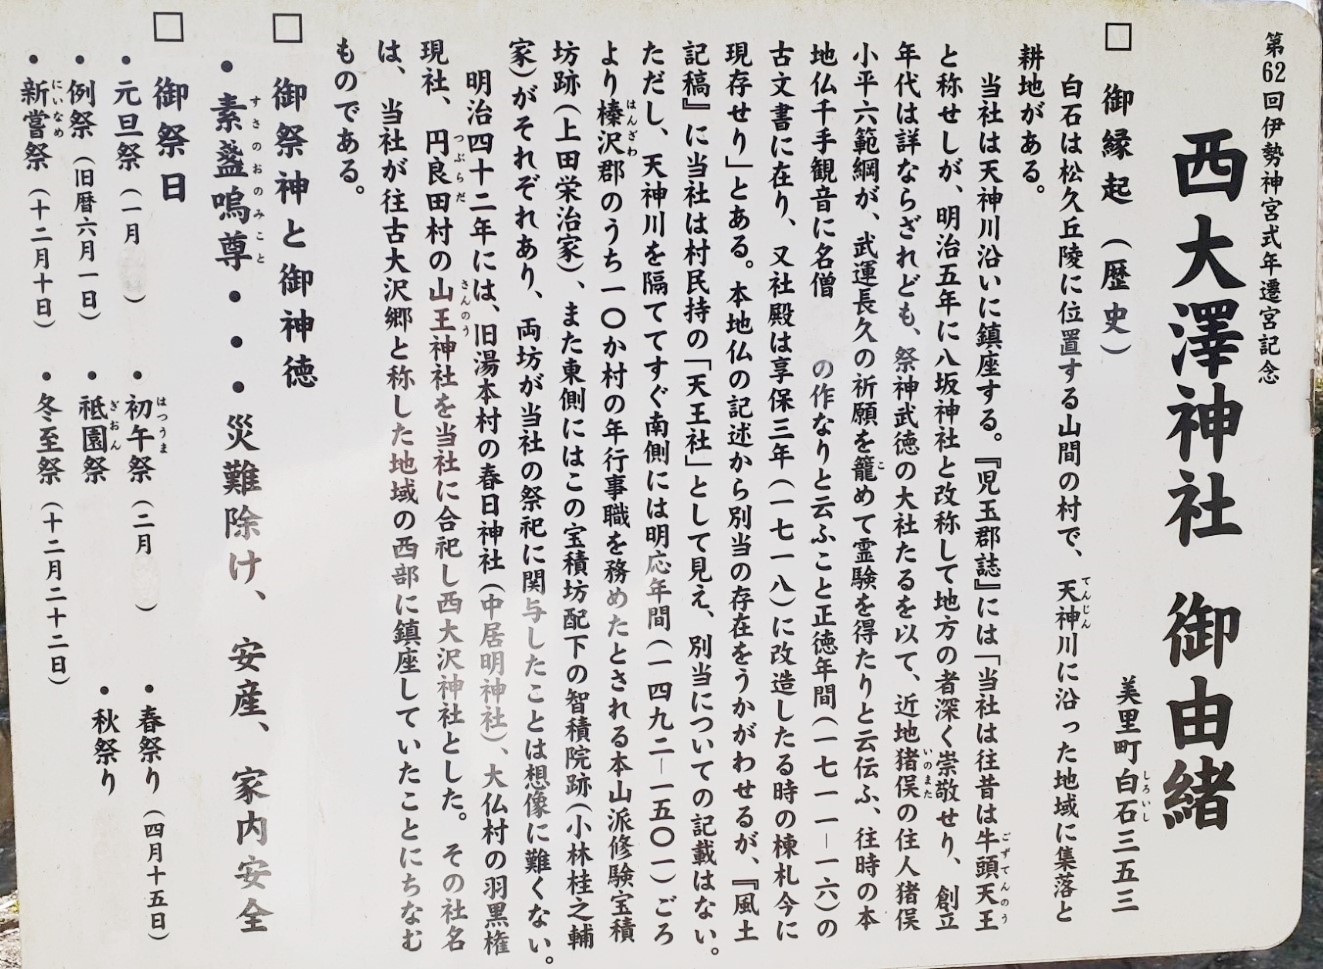 第62回伊勢神宮式年遷宮記念
西大澤神社 御由緒
美里町白石三五三
しろいし
□ 御縁起(歴史)
白石は松久丘陵に位置する山間の村で、天神川に沿った地域に集落と
てんじん
耕地がある。
当社は天神川沿いに鎮座する。『児玉郡誌』には「当社は往昔は牛頭天王
ごずてんのう
と称せしが、明治五年に八坂神社と改称して地方の者深く崇敬せり、創立
年代は詳ならざれども、祭神武徳の大社たるを以て、近地猪俣の住人猪俣
いのまた
小平六範綱が、武運長久の祈願を籠めて霊験を得たりと云伝ふ、往時の本
こ
地仏千手観音に名僧 の作なりと云ふこと正徳年間(一七一一―一六)の
古文書に在り、又社殿は享保三年(一七一八)に改造したる時の棟札今に
現存せり」とある。本地仏の記述から別当の存在をうかがわせるが、『風土
記稿』に当社は村民持の「天王社」として見え、別当についての記載はない。
ただし、天神川を隔ててすぐ南側には明応年間(一四九二―一五〇一)ごろ
より榛沢郡のうち一〇か村の年行事職を務めたとされる本山派修験宝積
はんざわ
坊跡(上田栄治家)、また東側にはこの宝積坊配下の智積院跡(小林桂之輔
家)がそれぞれあり、両坊が当社の祭祀に関与したことは想像に難くない。
明治四十二年には、旧湯本村の春日神社(中居明神社)、大仏村の羽黒権
現社、円良田村の山王神社を当社に合祀し西大沢神社とした。その社名
つぶらだ
さんのう
は、当社が往古大沢郷と称した地域の西部に鎮座していたことにちなむ
ものである。
□ 御祭神と御神徳
・素盞嗚尊・・・災難除け、安産、家内安全
すさのおのみこと
□ 御祭日
・元旦祭(一月 ) ・初午祭(二月 ) ・春祭り(四月十五日)
はつうま
・例祭(旧暦六月一日) ・祗園祭 ・秋祭り
ぎおん
・新嘗祭(十二月十日) ・冬至祭(十二月二十二日)
にいなめ